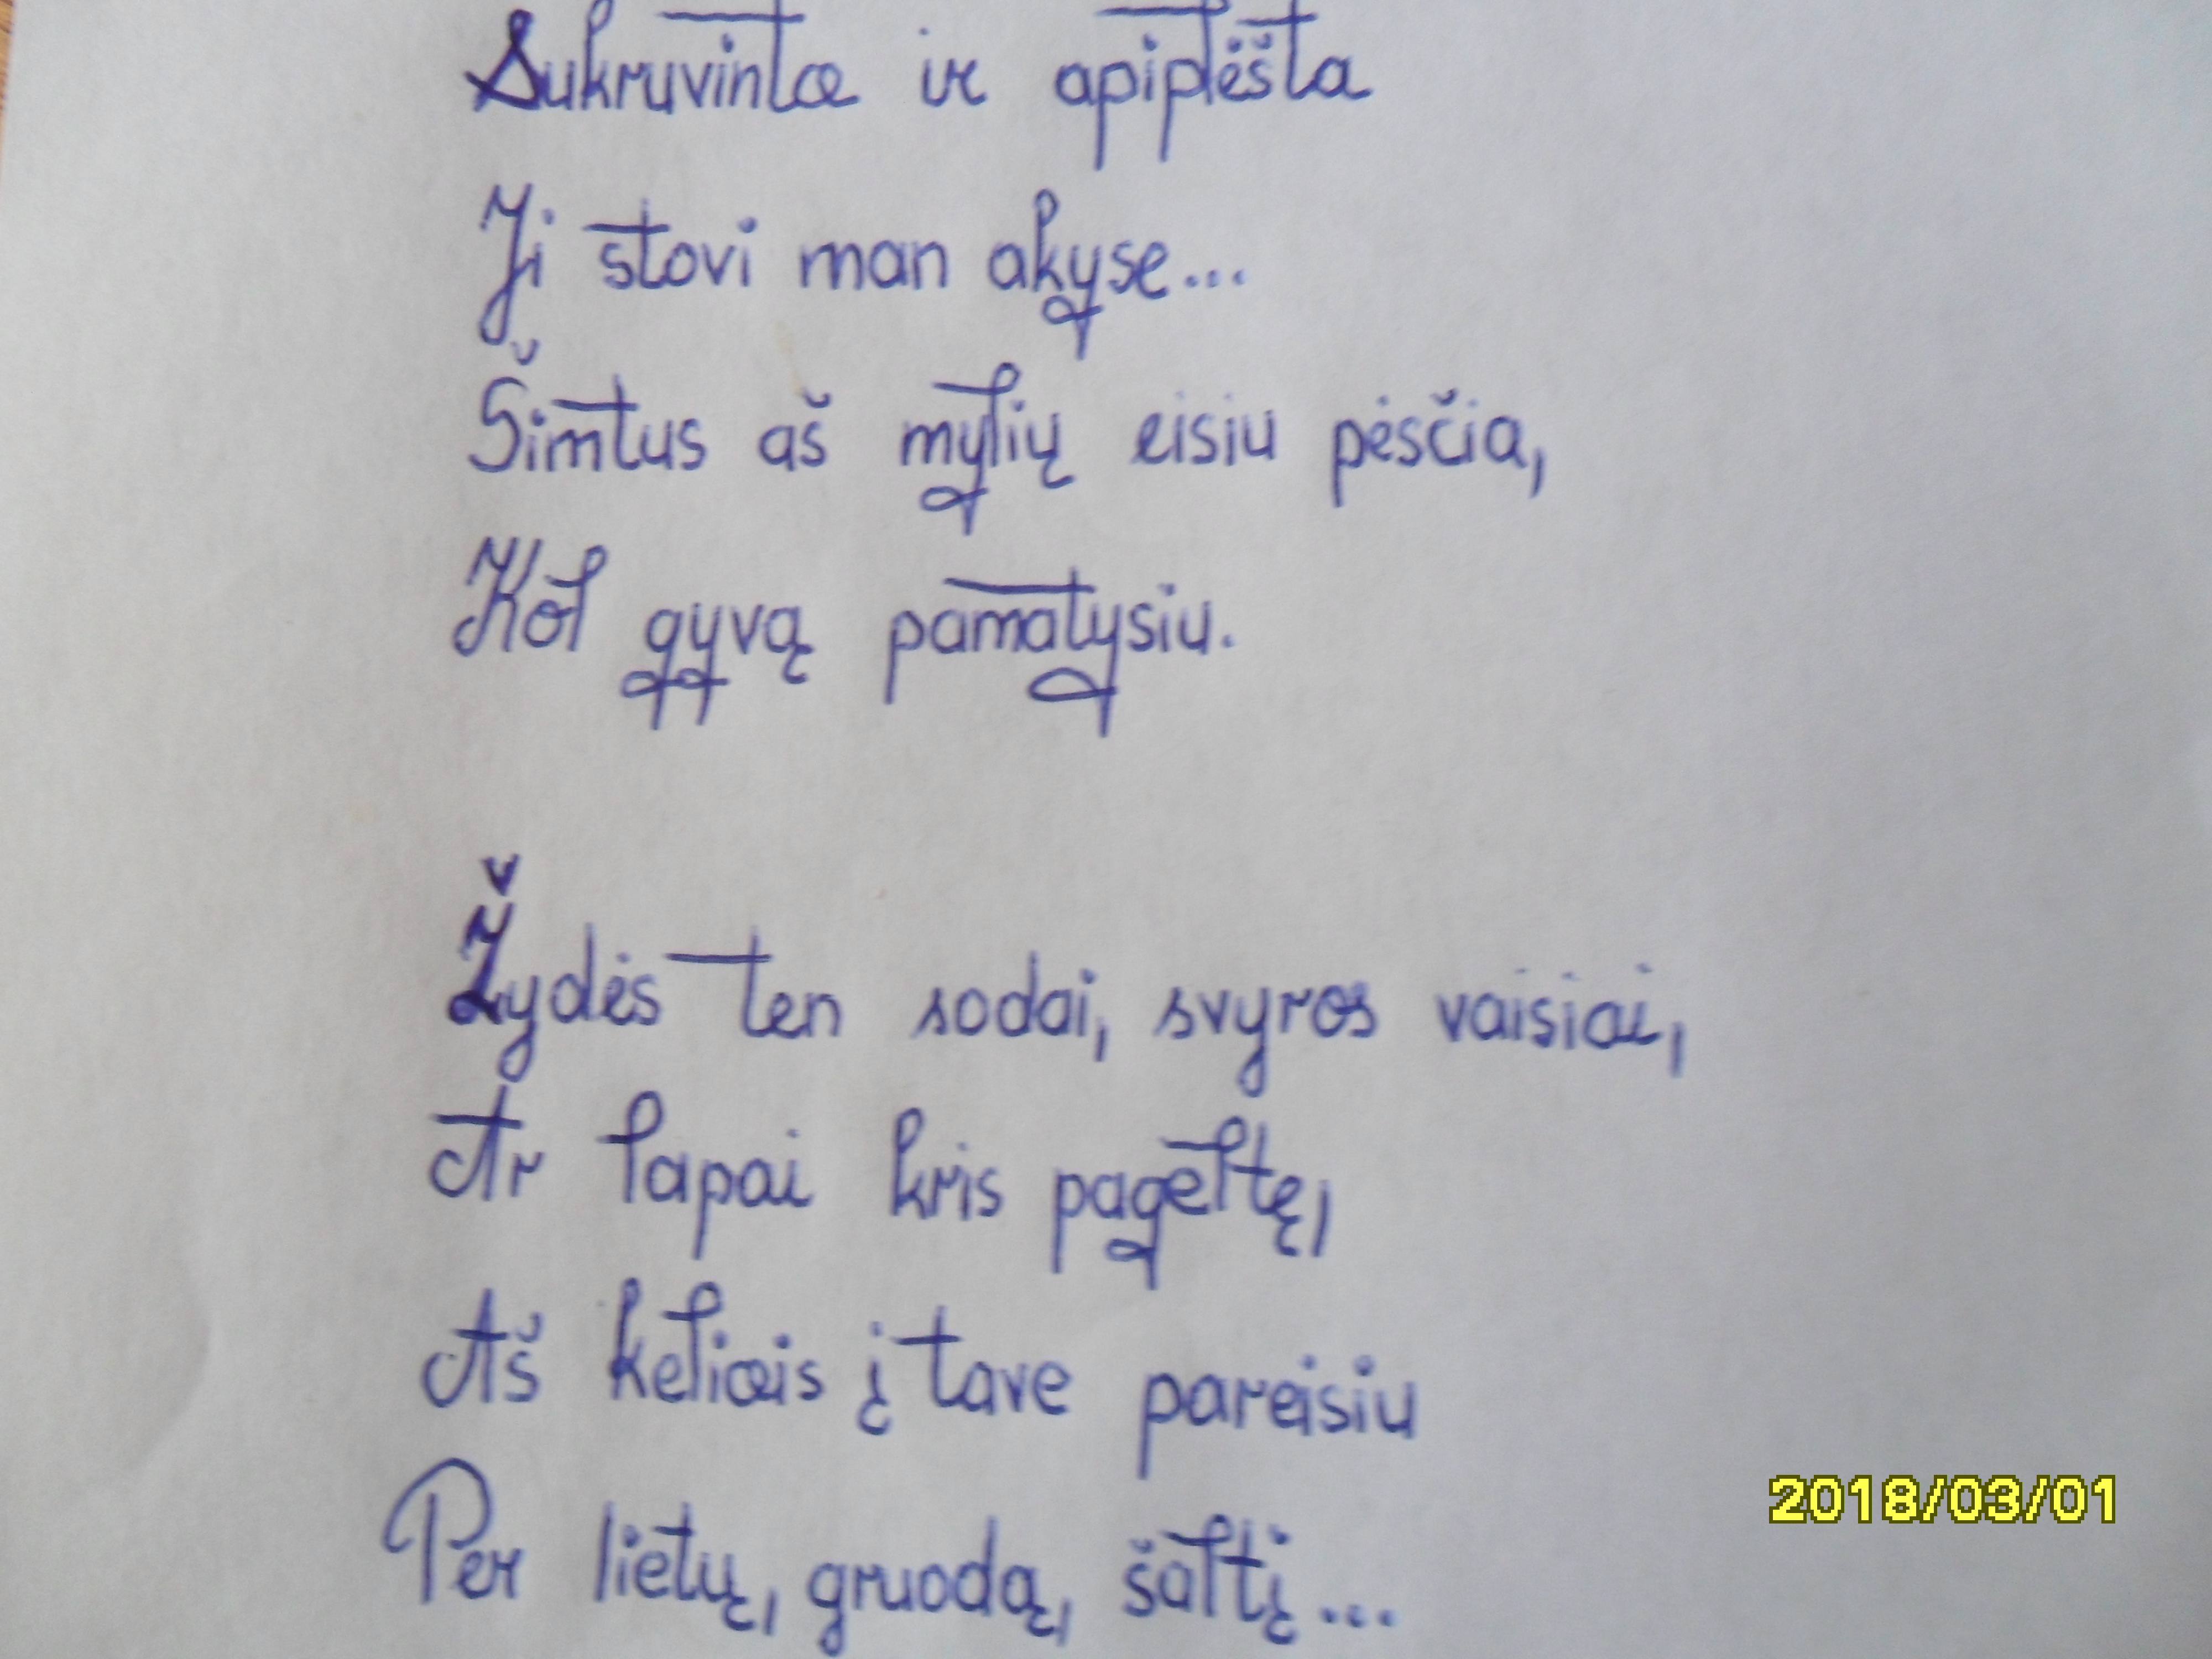 Sukruvinta ir apiplėšta
Ji stovi man akyse...
Šimtus aš mylių eisiu pėsčia,
Kol gyvą pamatysiu.
Žydės ten sodai, svyros vaisiai,
Ar lapai kris pageltę,
Aš keliais į tave pareisiu
Per lietų, gruodą, šaltį...
2018/03/01